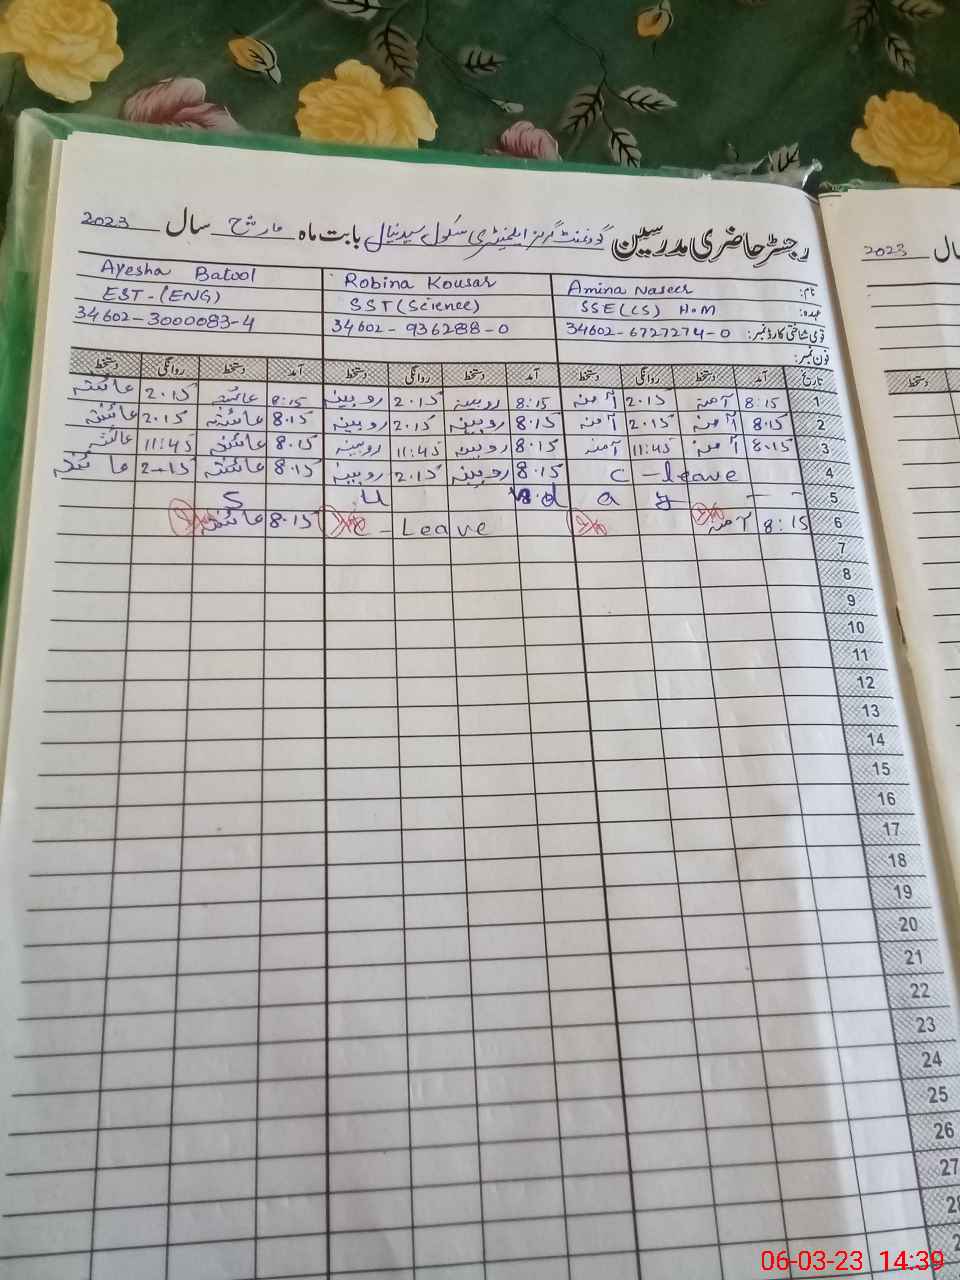 رجسٹر حاضری مدرسین گورنمنٹ گرلز ایلیمنٹری سکول سیدنیال بابت ماہ مارچ سال 2023
2023
نام: Amina Naseer Robina Kousar Ayesha Batool
عہدہ: SSE (CS) H.M SST (Science) EST-(ENG)
قومی شناختی کارڈ نمبر: 34602-6727274-0 34602-936288-0 34602-3000083-4
فون نمبر:
تاریخ آمد دستخط روانگی دستخط آمد دستخط روانگی دستخط آمد دستخط روانگی دستخط
دستخط
1 8:15 آمنہ 2.15 آمنہ 8:15 روبینہ 2.15 روبینہ 8:15 عائشہ 2.15 عائشہ
2 8.15 آمنہ 2.15 آمنہ 8.15 روبینہ 2.15 روبینہ 8.15 عائشہ 2.15 عائشہ
3 8.15 آمنہ 11:45 آمنہ 8.15 روبینہ 11:45 روبینہ 8.15 عائشہ 11:45 عائشہ
4 C-leave 8.15 روبینہ 2.15 روبینہ 8.15 عائشہ 2-15 عائشہ
5 S u n d a y - -
6 8:15 آمنہ C-Leave 8.15 عائشہ
7
8
9
10
11
12
13
14
15
16
17
18
19
20
21
22
23
24
25
26
27
06-03-23 14:39